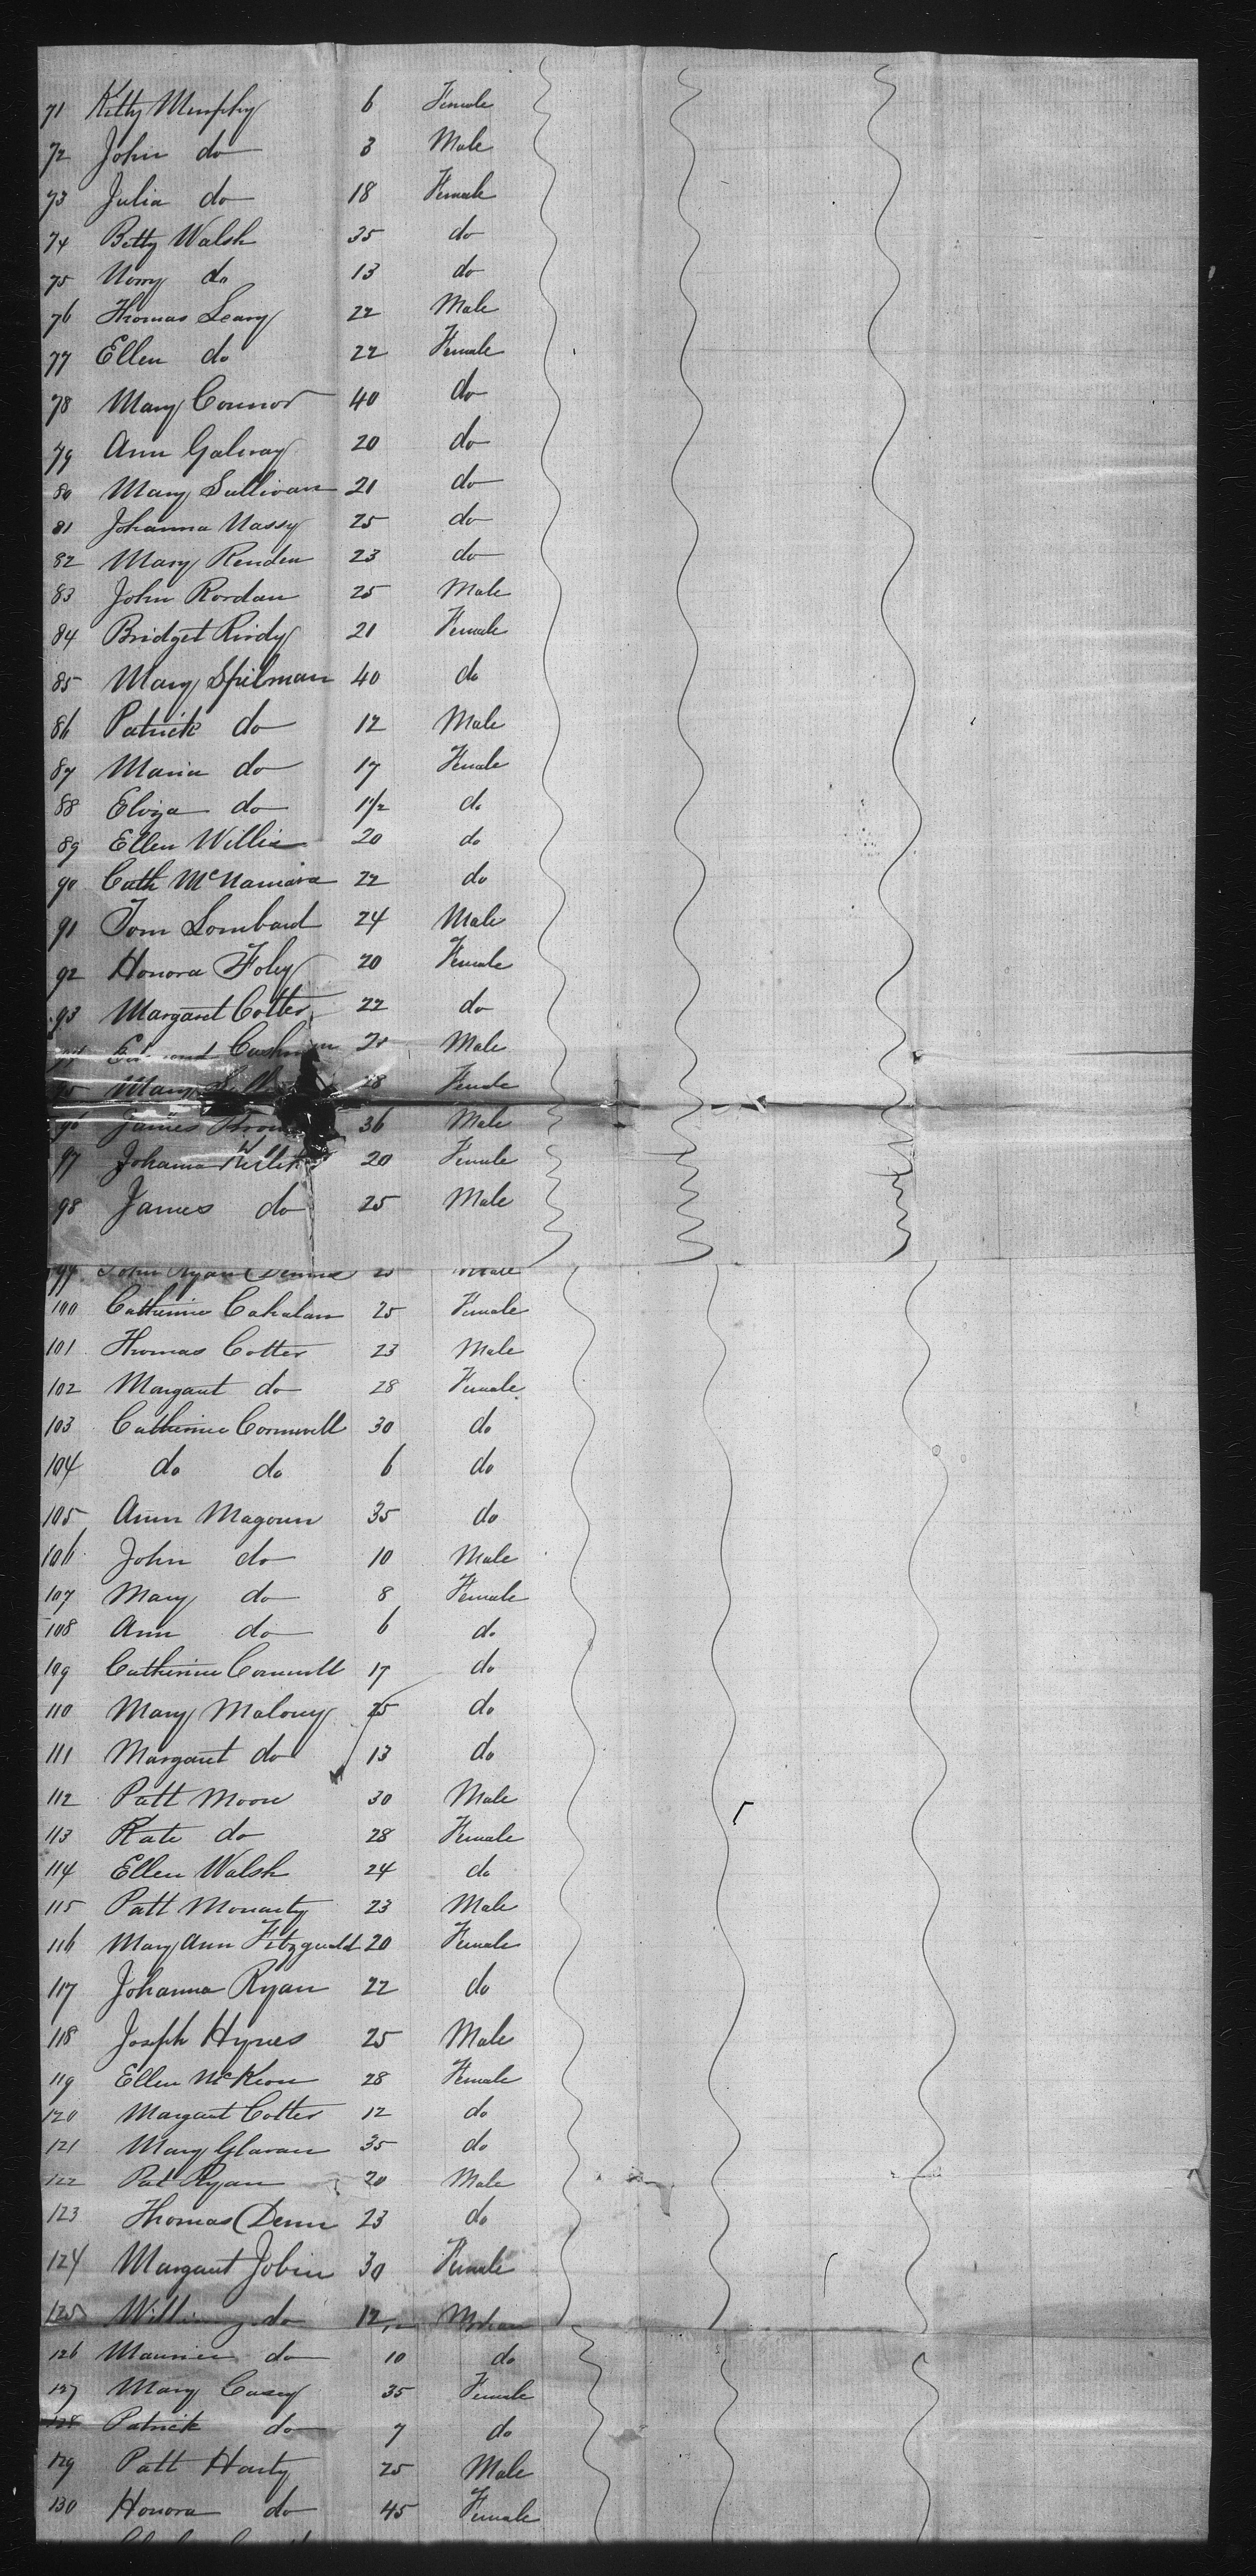 71 Kitty Murphy 6 Female
72 John do 3 Male
73 Julia do 18 Female
74 Betty Walsh 35 do
75 Norry do 13 do
76 Thomas Leary 22 Male
77 Ellen do 22 Female
78 Mary Connor 40 do
79 Ann Galway 20 do
80 Mary Sullivan 21 do
81 Johanna Nassy 25 do
82 Mary Renden 23 do
83 John Rordan 25 Male
84 Bridget Rirdy 21 Female
85 Mary Spilman 40 do
86 Patrick do 12 Male
87 Maria do 17 Female
88 Eliza do 1 1/2 do
89 Ellen Willis 20 do
90 Cath McNamara 22 do
91 Tom Lombard 24 Male
92 Honora Foley 20 Female
93 Margaret Cotter 22 do
Male
Mary 28 Female
96 James 36 Male
97 Johanna 20 Female
98 James do 25 Male
99 John Ryan Male
100 Catherine Cahalan 25 Female
101 Thomas Cotter 23 Male
102 Margaret do 28 Female
103 Catherine Cornwell 30 do
104 do do 6 do
105 Ann Magoun 35 do
106 John do 10 Male
107 Mary do 8 Female
108 Ann do 6 do
109 Catherine Cornwell 17 do
110 Mary Malony 25 do
111 Margaret do 13 do
112 Patt Moore 30 Male
113 Kate do 28 Female
114 Ellen Walsh 24 do
115 Patt Moriarty 23 Male
116 Mary Ann Fitzgerald 20 Female
117 Johanna Ryan 22 do
118 Joseph Hynes 25 Male
119 Ellen McKeon 28 Female
120 Margaret Cotter 12 do
121 Mary Glavan 35 do
122 Pat Ryan 20 Male
123 Thomas Denn 23 do
124 Margaret Jobin 30 Female
125 do 12
126 Maurice do 10 do
127 Mary Casey 35 Female
128 Patrick do 7 do
129 Patt Harty 25 Male
130 Honora do 45 Female